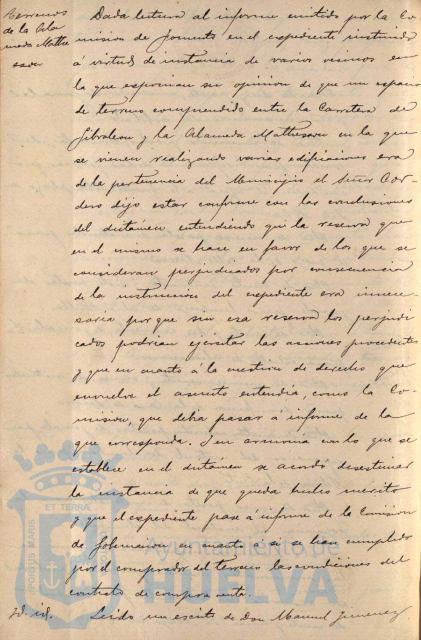 Terrenos
de la Ala
meda Mathe
sson
Dada lectura al informe emitido por la Co
mision de Fomento en el expediente instruido
á virtud de instancia de varios vecinos en
la que esponian su opinion de que un espacio
de terreno comprendido entre la Carretera de
Gibraleon y la Alameda Mathesson en la que
se vienen realizando varias edificaciones era
de la pertenencia del Municipio el Señor Cor-
dero dijo estar conforme con las conclusiones
del dictámen, entendiendo que la reserva que
en el mismo se hace en favor de los que se
consideran perjudicados por consecuencia
de la instruccion del expediente era innece-
saria por que sin esa reserva los perjudi
cados podrian ejercitar las acciones procedentes
y que en cuanto á la cuestion de derecho que
envuelve el asunto entendia, como la Co-
mision, que debia pasar á informe de la
que corresponda. Y en armonia con lo que se
establece en el dictámen se acordó desestimar
la instancia de que queda hecho mérito
y que el expediente pase á informe de la Comision
de Gobernacion en cuanto á si se han cumplido
por el comprador del terreno las condiciones del
contrato de compra venta.
Id. id. Leido un escrito de Don Manuel Jimenez
PORTUS MARIS
ET TERRAE
Ayuntamiento de
HUELVA